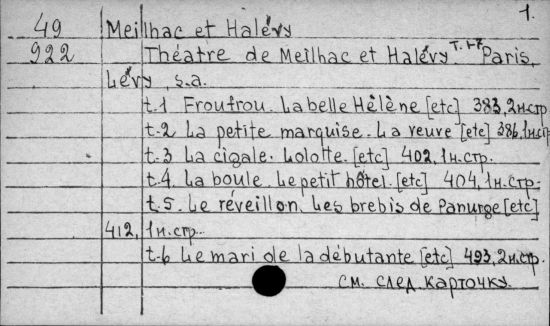 1.
49 Meilhac et Halévy
922 Théatre de Meilhac et Halévy. т. 1-8 Paris,
Lévy, s.a.
t.1 Froufrou. La belle Hélène [etc] 383, 2н.стр
t.2 La petite marquise. La veuve [etc] 386, 1н.стр
t.3 La cigale. Lolotte. [etc] 402, 1н.стр.
t.4. La boule. Le petit hôtel. [etc] 404, 1н.стр.
t.5. Le réveillon. Les brebis de Panurge [etc]
412, 1н.стр.
t.6 Le mari de la débutante [etc] 493, 2н.стр.
см. след карточку.